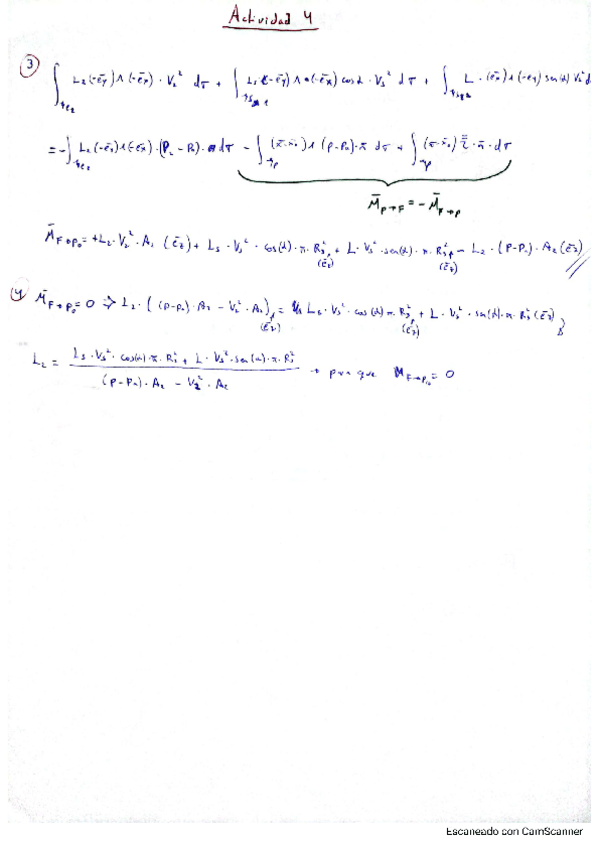 Actividad 4
3
∫ L₂(-ēy)∧(-ēx)·V₂² dσ + ∫ L₃(-ēy)∧(-ēx) cos α · V₃² dσ + ∫ L·(ēx)∧(-ey) sen(α) V₃² d
= -∫ L₂(-ēy)∧(-ēx)·(P₂ - Pa)· dσ - ∫ (x̄-x̄₀)∧(p-pa)·n̄ dσ + ∫ (x̄-x̄₀) · n̄ · dσ
M̄ p→F = - M̄ F→p
M̄ F→p₀ = +L₂·V₂²·A₂ (ēz) + L₃·V₃²·cos(α)·π·R₃² (ēz) + L·V₃²·sen(α)·π·R₃² (ēz) - L₂·(P-Pa)·A₂(ēz)
4 M̄ F→p₀ = 0 ⇒ L₂·((p-pa)·A₂ - V₂²·A₂) (ēz) = L₃·V₃²·cos(α)π·R₃² (ēz) + L·V₃²·sen(α)·π·R₃²(ēz)
L₂ = (L₃·V₃²·cos(α)·π·R₃² + L·V₃²·sen(α)·π·R₃²) / ((p-pa)·A₂ - V₂²·A₂) → para que M F→p₀ = 0
Escaneado con CamScanner